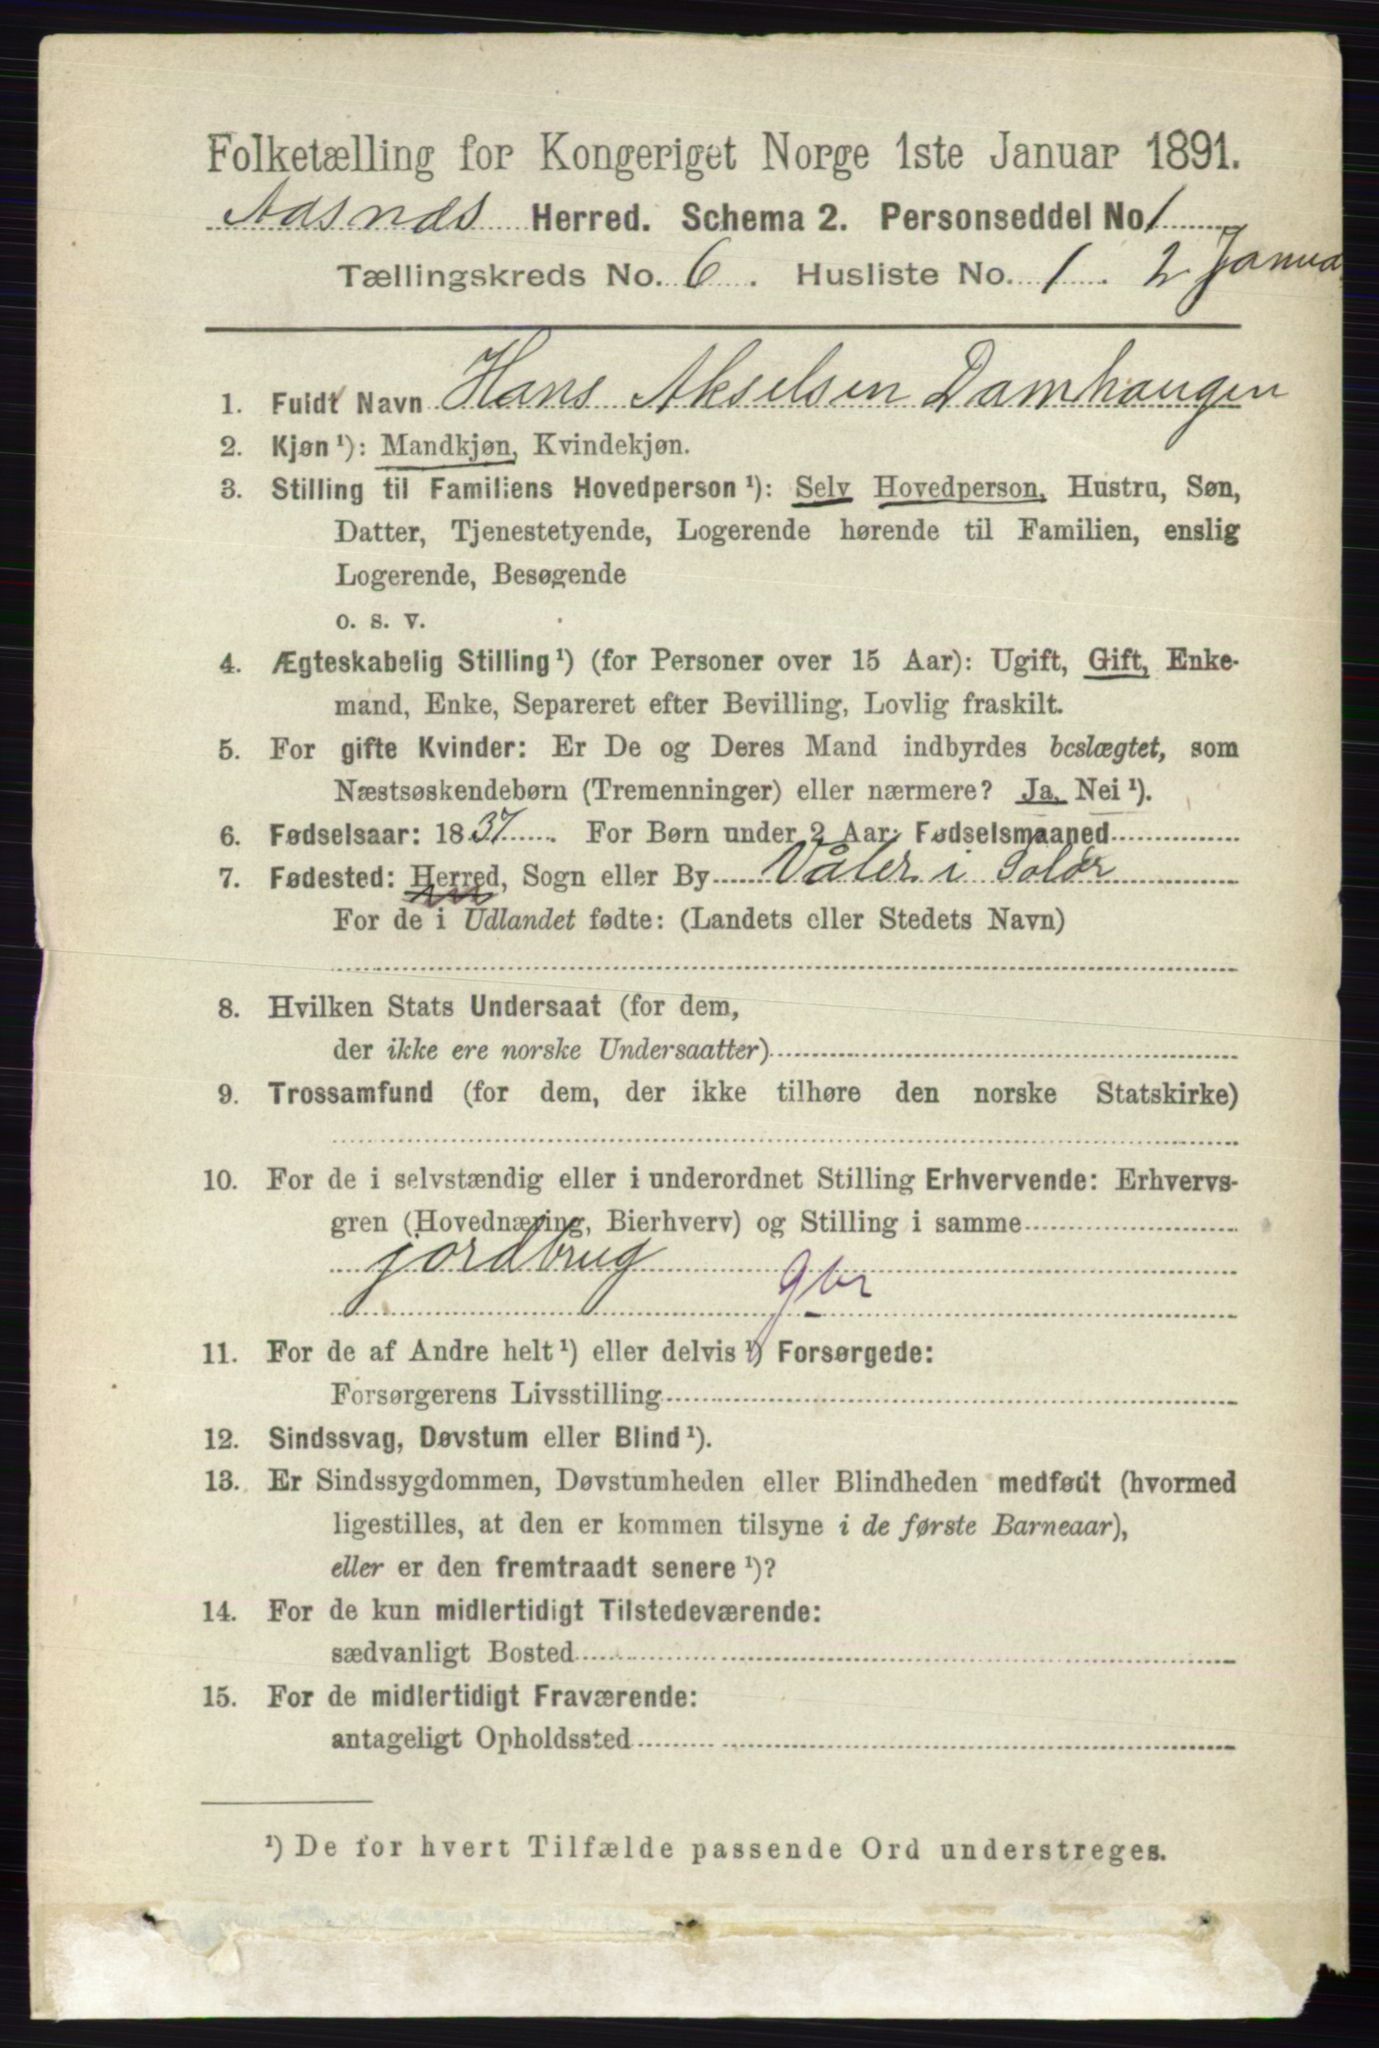 Folketælling for Kongeriget Norge 1ste Januar 1891.
Aasnæs Herred. Schema 2. Personseddel No. 1
Tællingskreds No. 6. Husliste No. 1. 2 Janua
1. Fuldt Navn Hans Akselsen Damhaugen
2. Kjøn ¹): Mandkjøn, Kvindekjøn.
3. Stilling til Familiens Hovedperson ¹): Selv Hovedperson, Hustru, Søn,
Datter, Tjenestetyende, Logerende hørende til Familien, enslig
Logerende, Besøgende
o. s. v.
4. Ægteskabelig Stilling ¹) (for Personer over 15 Aar): Ugift, Gift, Enke-
mand, Enke, Separeret efter Bevilling, Lovlig fraskilt.
5. For gifte Kvinder: Er De og Deres Mand indbyrdes beslægtet, som
Næstsøskendebørn (Tremenninger) eller nærmere? Ja, Nei ¹).
6. Fødselsaar: 1837. For Børn under 2 Aar: Fødselsmaaned
7. Fødested: Herred, Sogn eller By Våler i Solør
For de i Udlandet fødte: (Landets eller Stedets Navn)
8. Hvilken Stats Undersaat (for dem,
der ikke ere norske Undersaatter)
9. Trossamfund (for dem, der ikke tilhøre den norske Statskirke)
10. For de i selvstændig eller i underordnet Stilling Erhvervende: Erhvervs-
gren (Hovednæring, Bierhverv) og Stilling i samme
jordbrug
gbr
11. For de af Andre helt ¹) eller delvis ¹) Forsørgede:
Forsørgerens Livsstilling
12. Sindssvag, Døvstum eller Blind ¹).
13. Er Sindssygdommen, Døvstumheden eller Blindheden medfødt (hvormed
ligestilles, at den er kommen tilsyne i de første Barneaar),
eller er den fremtraadt senere ¹)?
14. For de kun midlertidigt Tilstedeværende:
sædvanligt Bosted
15. For de midlertidigt Fraværende:
antageligt Opholdssted
¹) De for hvert Tilfælde passende Ord understreges.